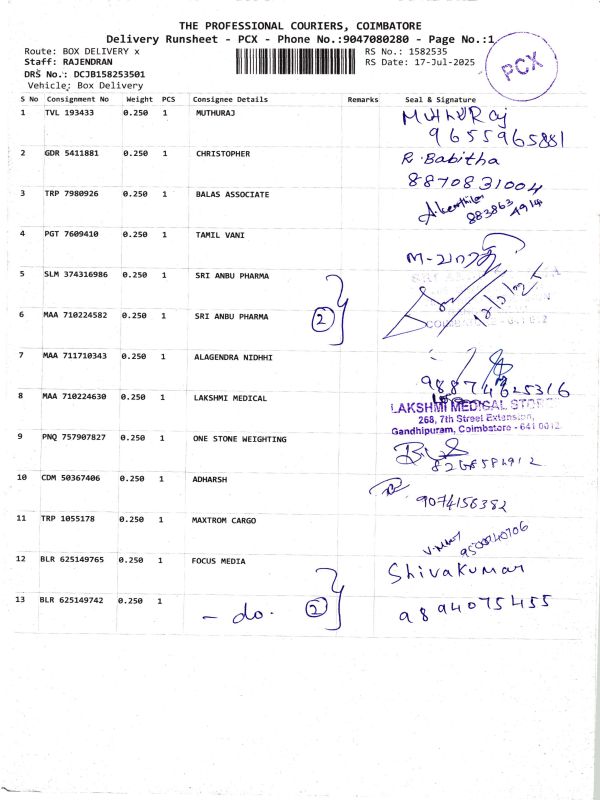 THE PROFESSIONAL COURIERS, COIMBATORE
Delivery Runsheet - PCX - Phone No.:9047080280 - Page No.:1
Route: BOX DELIVERY x
RS No.: 1582535
Staff: RAJENDRAN
RS Date: 17-Jul-2025
DRS No.: DCJB158253501
Vehicle: Box Delivery
PCX
S No Consignment No Weight PCS Consignee Details Remarks Seal & Signature
1 TVL 193433 0.250 1 MUTHURAJ MUTHURAJ
9655965881
2 GDR 5411881 0.250 1 CHRISTOPHER R. Babitha
8870831004
3 TRP 7980926 0.250 1 BALAS ASSOCIATE
883863 4914
4 PGT 7609410 0.250 1 TAMIL VANI
5 SLM 374316986 0.250 1 SRI ANBU PHARMA
2
6 MAA 710224582 0.250 1 SRI ANBU PHARMA
7 MAA 711710343 0.250 1 ALAGENDRA NIDHHI
98874625316
8 MAA 710224630 0.250 1 LAKSHMI MEDICAL
LAKSHMI MEDICAL STORES
268, 7th Street Extension,
Gandhipuram, Coimbatore - 641 0012.
9 PNQ 757907827 0.250 1 ONE STONE WEIGHTING
10 CDM 50367406 0.250 1 ADHARSH
9074156382
11 TRP 1055178 0.250 1 MAXTROM CARGO
9500940706
12 BLR 625149765 0.250 1 FOCUS MEDIA Shivakumar
13 BLR 625149742 0.250 1 - do. 2 9894075455